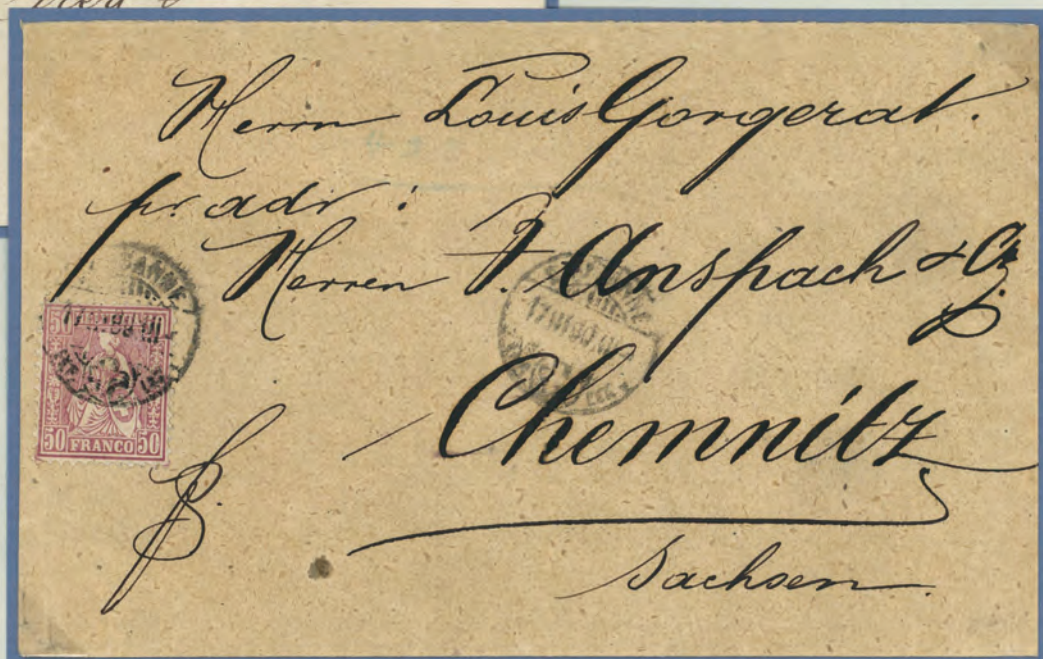 Herrn Louis Gorgerat.
pr. adr:
Herren P. Anspach & Co
Chemnitz
Sachsen.
50 FRANCO 50